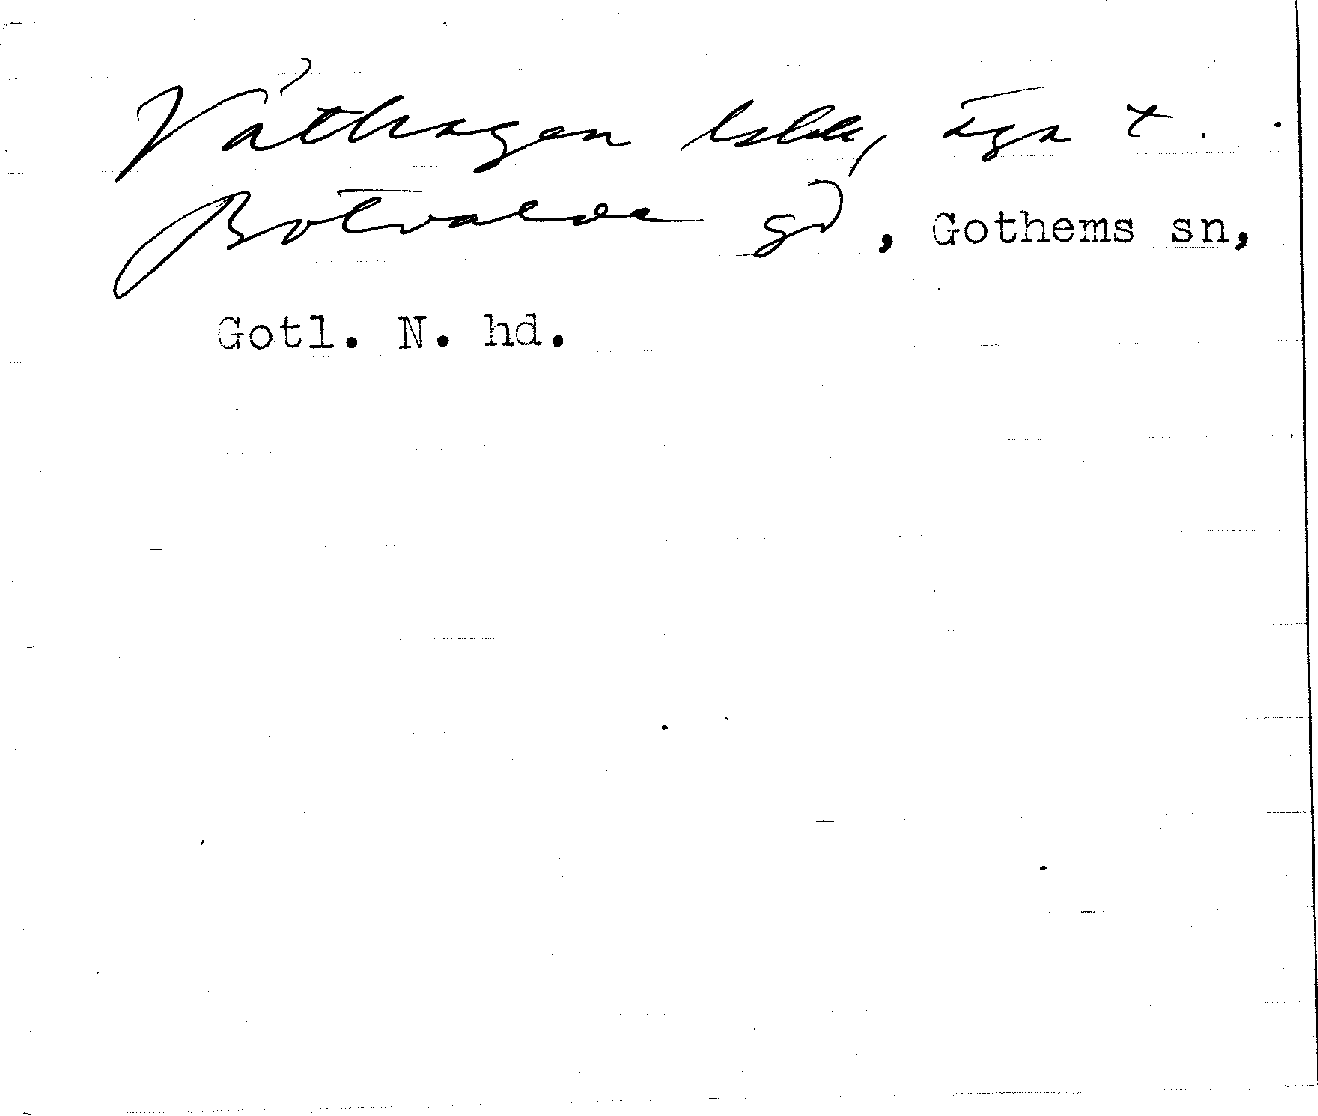 Våthagen äga t.
Botvalde gd, Gothems sn,
Gotl. N. hd.